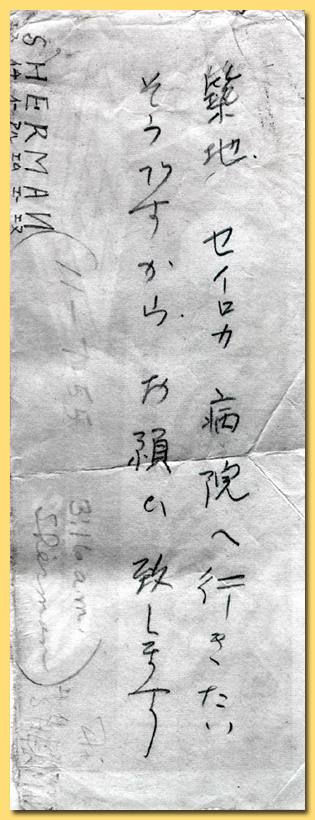 築地 セイロカ 病院へ行きたい
そうですから お願い致します
SHERMAN
11-7-55
3116 a.m.
Sherman